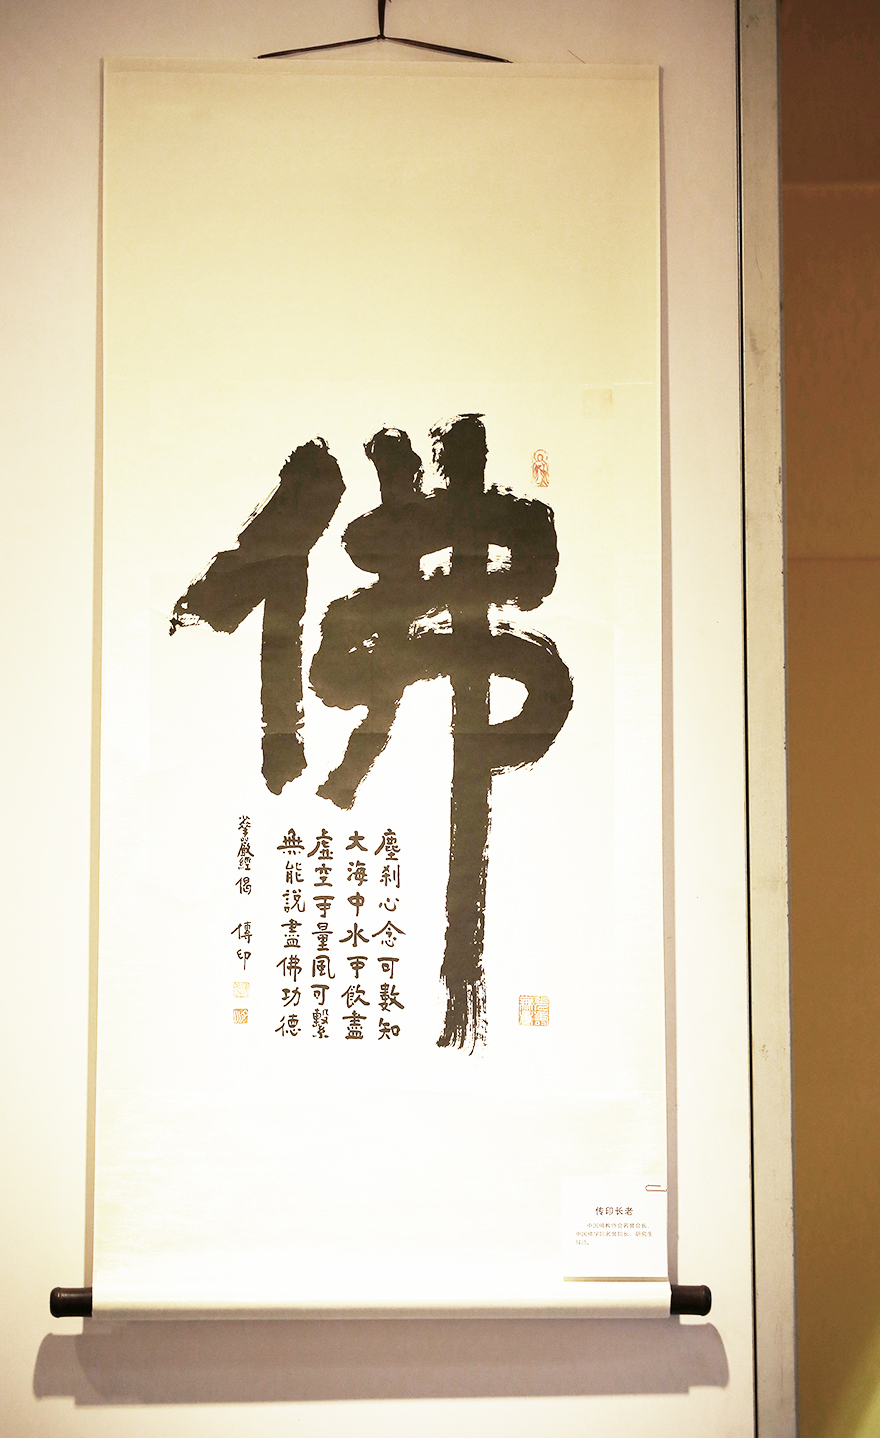 佛
塵刹心念可數知
大海中水可飲盡
虛空可量風可繫
無能説盡佛功德
華嚴經偈 傳印
传印长老
中国佛教协会名誉会长、
中国佛学院名誉院长、研究生
导师。